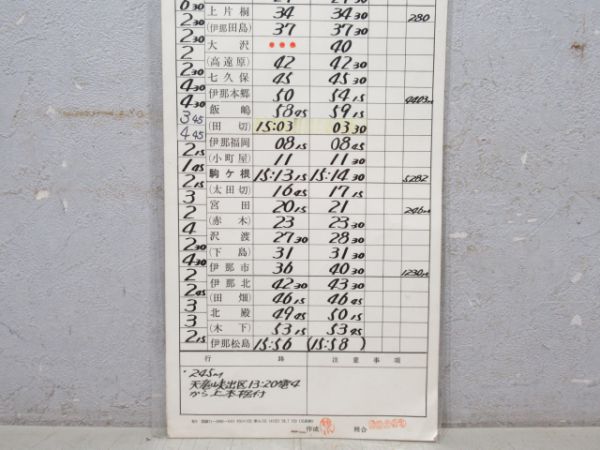 0 30
上片桐 34 34 30 280
2 30 (伊那田島) 37 37 30
2 大沢 ••• 40
2 (高遠原) 42 42 30
2 30 七久保 45 45 30
4 30 伊那本郷 50 54 15 4403M
4 30 飯嶋 58 45 59 15
3 45 (田切) 15:03 03 30
4 45 伊那福岡 08 15 08 45
2 15 (小町屋) 11 11 30
1 45 駒ヶ根 15:13 15 15:14 30 5282
2 15 (太田切) 16 45 17 15
3 宮田 20 15 21 246M
2 (赤木) 23 23 30
4 沢渡 27 30 28 30
2 30 (下島) 31 31 30
4 30 伊那市 36 40 30 1230M
2 伊那北 42 30 43 30
2 45 (田畑) 46 15 46 45
3 北殿 49 45 50 15
3 (木下) 53 15 53 45
2 15 伊那松島 15:56 (15:58)
行路 注意事項
245M
天竜峡出区13:20
から上本
作成 照合